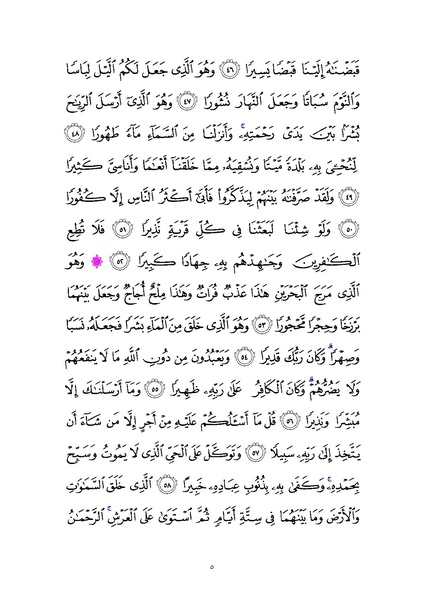 قَبَضْنَٰهُ إِلَيْنَا قَبْضًا يَسِيرًا ﴿٤٦﴾ وَهُوَ ٱلَّذِى جَعَلَ لَكُمُ ٱلَّيْلَ لِبَاسًا
وَٱلنَّوْمَ سُبَاتًا وَجَعَلَ ٱلنَّهَارَ نُشُورًا ﴿٤٧﴾ وَهُوَ ٱلَّذِىٓ أَرْسَلَ ٱلرِّيَٰحَ
بُشْرًۢا بَيْنَ يَدَىْ رَحْمَتِهِۦ ۚ وَأَنزَلْنَا مِنَ ٱلسَّمَآءِ مَآءً طَهُورًا ﴿٤٨﴾
لِّنُحْـِۧىَ بِهِۦ بَلْدَةً مَّيْتًا وَنُسْقِيَهُۥ مِمَّا خَلَقْنَآ أَنْعَٰمًا وَأَنَاسِىَّ كَثِيرًا
﴿٤٩﴾ وَلَقَدْ صَرَّفْنَٰهُ بَيْنَهُمْ لِيَذَّكَّرُوا۟ فَأَبَىٰٓ أَكْثَرُ ٱلنَّاسِ إِلَّا كُفُورًا
﴿٥٠﴾ وَلَوْ شِئْنَا لَبَعَثْنَا فِى كُلِّ قَرْيَةٍ نَّذِيرًا ﴿٥١﴾ فَلَا تُطِعِ
ٱلْكَٰفِرِينَ وَجَٰهِدْهُم بِهِۦ جِهَادًا كَبِيرًا ﴿٥٢﴾ ۞ وَهُوَ
ٱلَّذِى مَرَجَ ٱلْبَحْرَيْنِ هَٰذَا عَذْبٌ فُرَاتٌ وَهَٰذَا مِلْحٌ أُجَاجٌ وَجَعَلَ بَيْنَهُمَا
بَرْزَخًا وَحِجْرًا مَّحْجُورًا ﴿٥٣﴾ وَهُوَ ٱلَّذِى خَلَقَ مِنَ ٱلْمَآءِ بَشَرًا فَجَعَلَهُۥ نَسَبًا
وَصِهْرًا ۗ وَكَانَ رَبُّكَ قَدِيرًا ﴿٥٤﴾ وَيَعْبُدُونَ مِن دُونِ ٱللَّهِ مَا لَا يَنفَعُهُمْ
وَلَا يَضُرُّهُمْ ۗ وَكَانَ ٱلْكَافِرُ عَلَىٰ رَبِّهِۦ ظَهِيرًا ﴿٥٥﴾ وَمَآ أَرْسَلْنَٰكَ إِلَّا
مُبَشِّرًا وَنَذِيرًا ﴿٥٦﴾ قُلْ مَآ أَسْـَٔلُكُمْ عَلَيْهِ مِنْ أَجْرٍ إِلَّا مَن شَآءَ أَن
يَتَّخِذَ إِلَىٰ رَبِّهِۦ سَبِيلًا ﴿٥٧﴾ وَتَوَكَّلْ عَلَى ٱلْحَىِّ ٱلَّذِى لَا يَمُوتُ وَسَبِّحْ
بِحَمْدِهِۦ ۚ وَكَفَىٰ بِهِۦ بِذُنُوبِ عِبَادِهِۦ خَبِيرًا ﴿٥٨﴾ ٱلَّذِى خَلَقَ ٱلسَّمَٰوَٰتِ
وَٱلْأَرْضَ وَمَا بَيْنَهُمَا فِى سِتَّةِ أَيَّامٍ ثُمَّ ٱسْتَوَىٰ عَلَى ٱلْعَرْشِ ۚ ٱلرَّحْمَٰنُ
٥